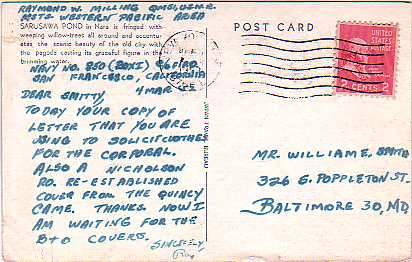 RAYMOND W. MILLING QMGI, USNR.
MSTS WESTERN PACIFIC AREA
SARUSAWA POND in Nara is fringed with
weeping willow-trees all around and accentu-
ates the scenic beauty of the old city with
the pagoda casting its graceful figure in the
brimming water.
NAVY NO. 850 (BOX5) % FPO
SAN FRANCISCO, CALIFORNIA
4 MAR
DEAR SMITTY,
TODAY YOUR COPY OF
LETTER THAT YOU ARE
USING TO SOLICIT CLOTHES
FOR THE CORPORAL.
ALSO A NICHOLSON
RO. RE-ESTABLISHED
COVER FROM THE QUINCY
CAME. THANKS. NOW I
AM WAITING FOR THE
B+O COVERS.
SINCERELY,
Ray
POST CARD
UNITED
STATES
POSTAGE
2 CENTS 2
MR. WILLIAM E. SMITH
326 G. POPPLETON ST.
BALTIMORE 30, MD